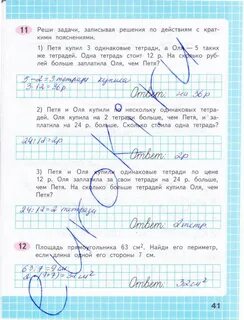 11 Реши задачи, записывая решения по действиям с крат-
кими пояснениями.
1) Петя купил 3 одинаковые тетради, а Оля — 5 таких
же тетрадей. Одна тетрадь стоит 12 р. На сколько руб-
лей больше заплатила Оля, чем Петя?
5-2=3 тетради купила
3·12=36р
Ответ: на 36р
2) Петя и Оля купили по нескольку одинаковых тетрадей.
Оля купила на 2 тетради больше, чем Петя, и за-
платила на 24 р. больше. Сколько стоила одна тетрадь?
24:12=2р
Ответ: 2р
3) Петя и Оля купили одинаковые тетради по цене
12 р. Оля заплатила за свои тетради на 24 р. больше,
чем Петя. На сколько больше тетрадей купила Оля, чем
Петя?
24:12=2 тетради
Ответ: 2
12 Площадь прямоугольника 63 см². Найди его периметр,
если длина одной его стороны 7 см.
Ответ: 32см²
41